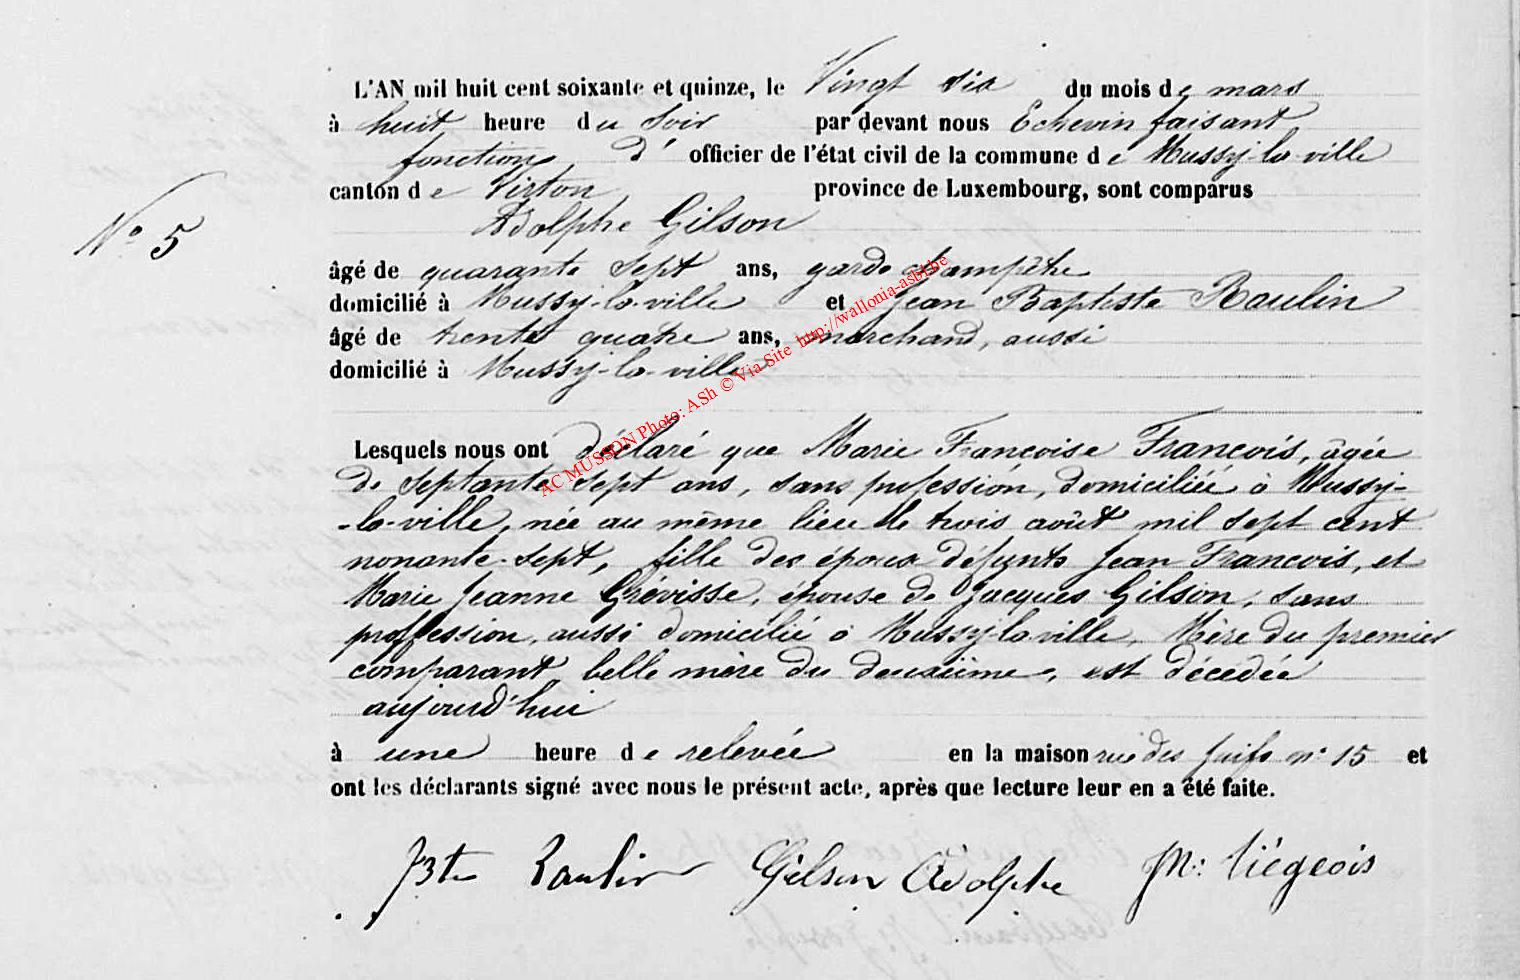 L'AN mil huit cent soixante et quinze, le Vingt six du mois de mars
à huit heure du soir par devant nous Echevin faisant
fonctions d' officier de l'état civil de la commune de Mussy-la-ville
canton de Virton province de Luxembourg, sont comparus
Adolphe Gilson
N° 5
âgé de quarante sept ans, garde champêtre
domicilié à Mussy-la-ville et Jean Baptiste Raulin
âgé de trente quatre ans, marchand, aussi
domicilié à Mussy-la-ville
AC MUSSON Photo: ASh © Via Site http://wallonia-asbl.be
Lesquels nous ont déclaré que Marie Françoise François, agée
de septante sept ans, sans profession, domiciliée à Mussy-
-la-ville, née au même lieu le trois août mil sept cent
nonante-sept, fille des époux défunts Jean François, et
Marie Jeanne Grévisse, épouse de Jacques Gilson, sans
proffession, aussi domicilié à Mussy-la-ville, Mère du premier
comparant, belle mère du deuxième, est décedée
aujourd'hui
à une heure de relevée en la maison rue des Juifs n° 15 et
ont les déclarants signé avec nous le présent acte, après que lecture leur en a été faite.
Bte Raulin Gilson Adolphe M: Liégeois